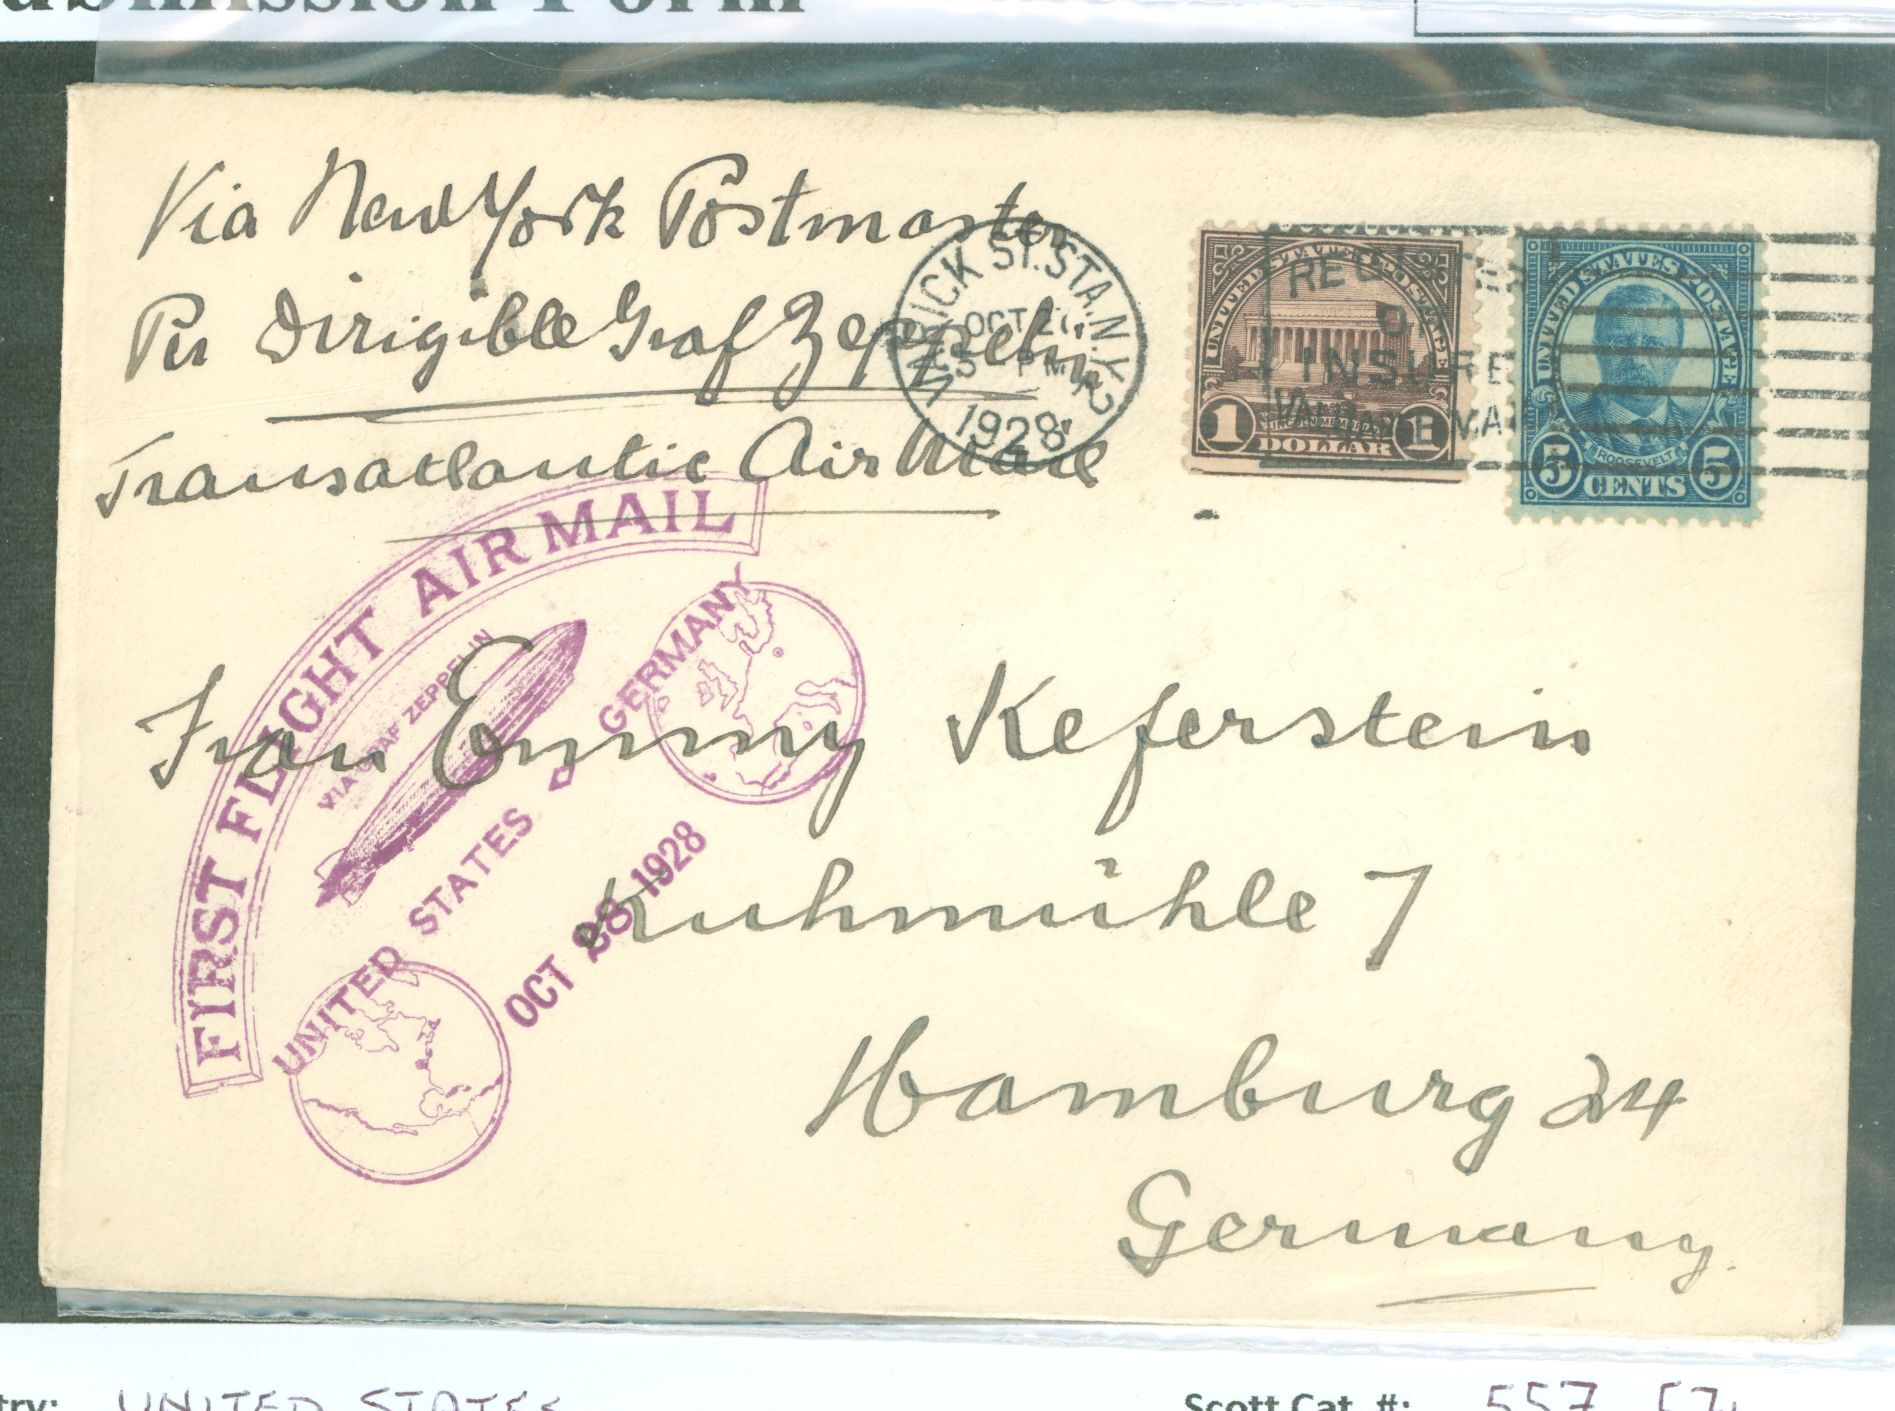 Submission Form
Via New York Postmaster
Per Dirigible Graf Zeppelin
Transatlantic Air Mail
VARICK ST. STA. N.Y.
OCT 27
5 PM
1928
UNITED STATES POSTAGE
LINCOLN MEMORIAL
1 DOLLAR 1
UNITED STATES POSTAGE
ROOSEVELT
5 CENTS 5
INSURE
MAIL
FIRST FLIGHT AIR MAIL
VIA GRAF ZEPPELIN
UNITED STATES GERMANY
OCT 28 1928
Frau Emmy Keferstein
Kuhmühle 7
Hamburg 24
Germany.
UNITED STATES
Scott Cat. #: 557